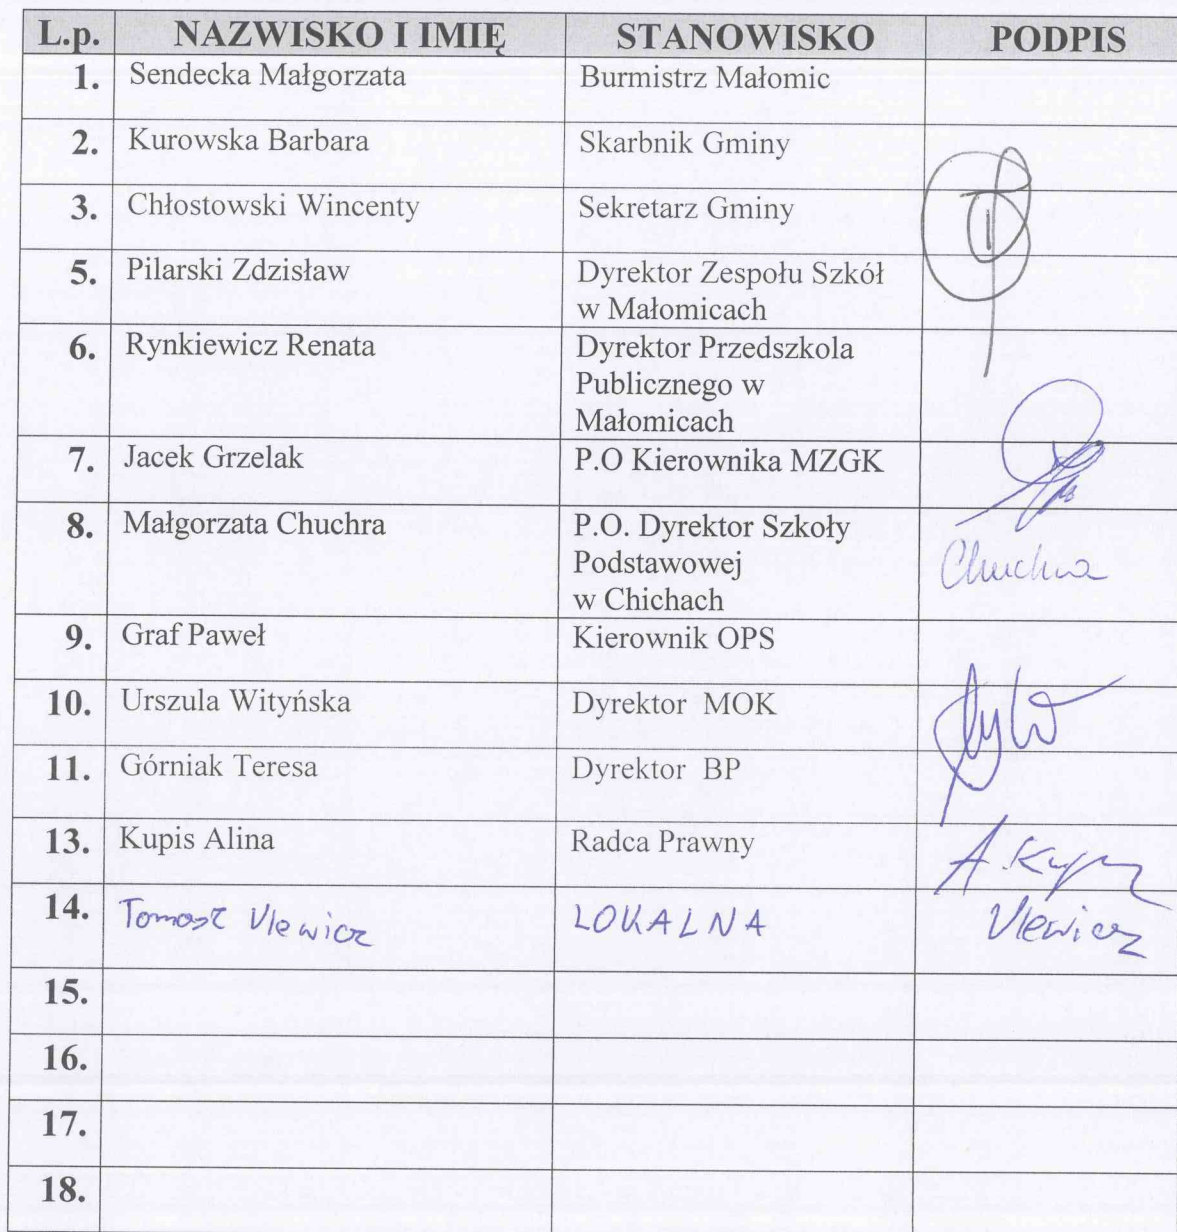 L.p. NAZWISKO I IMIĘ STANOWISKO PODPIS
1. Sendecka Małgorzata Burmistrz Małomic
2. Kurowska Barbara Skarbnik Gminy
3. Chłostowski Wincenty Sekretarz Gminy
5. Pilarski Zdzisław Dyrektor Zespołu Szkół
w Małomicach
6. Rynkiewicz Renata Dyrektor Przedszkola
Publicznego w
Małomicach
7. Jacek Grzelak P.O Kierownika MZGK
8. Małgorzata Chuchra P.O. Dyrektor Szkoły
Podstawowej Chuchra
w Chichach
9. Graf Paweł Kierownik OPS
10. Urszula Wityńska Dyrektor MOK
11. Górniak Teresa Dyrektor BP
13. Kupis Alina Radca Prawny A. Kupis
14. Tomasz Ulewicz LOKALNA Ulewicz
15.
16.
17.
18.